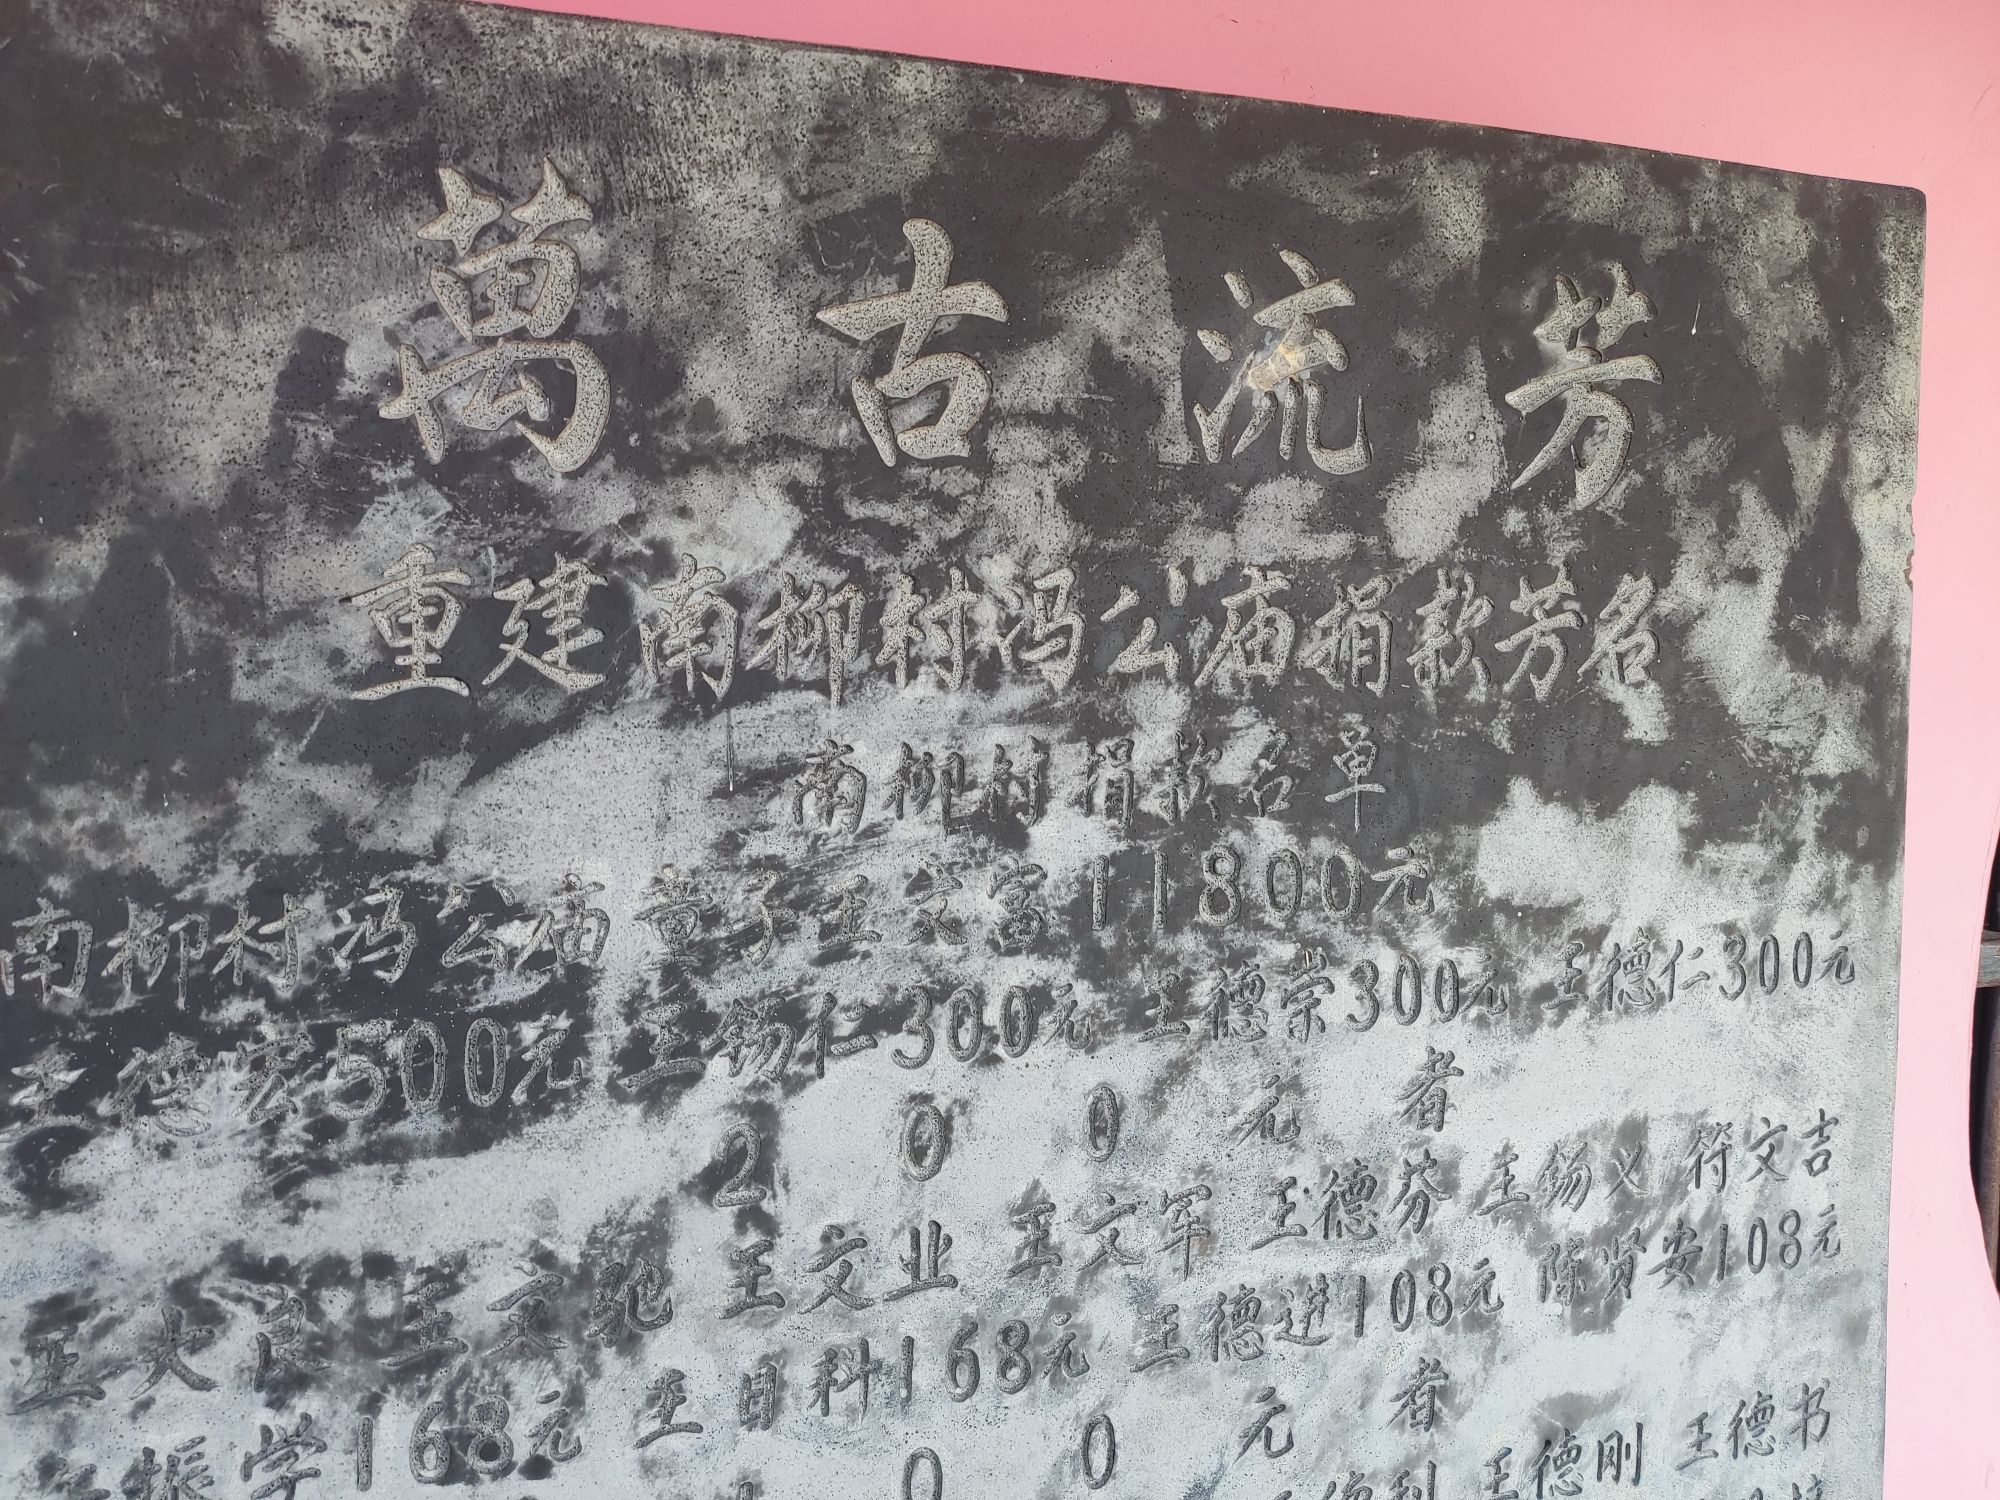 萬古流芳
重建南柳村冯公庙捐款芳名
南柳村捐款名单
南柳村冯公庙童子王文富11800元
王德宏500元 王錫仁300元 王德崇300元 王德仁300元
200元者
王大良 王文驰 王文业 王文军 王德芬 王錫义 符文吉
振学168元 王目科168元 王德进108元 陈贤安108元
00元者
王德刚 王德书